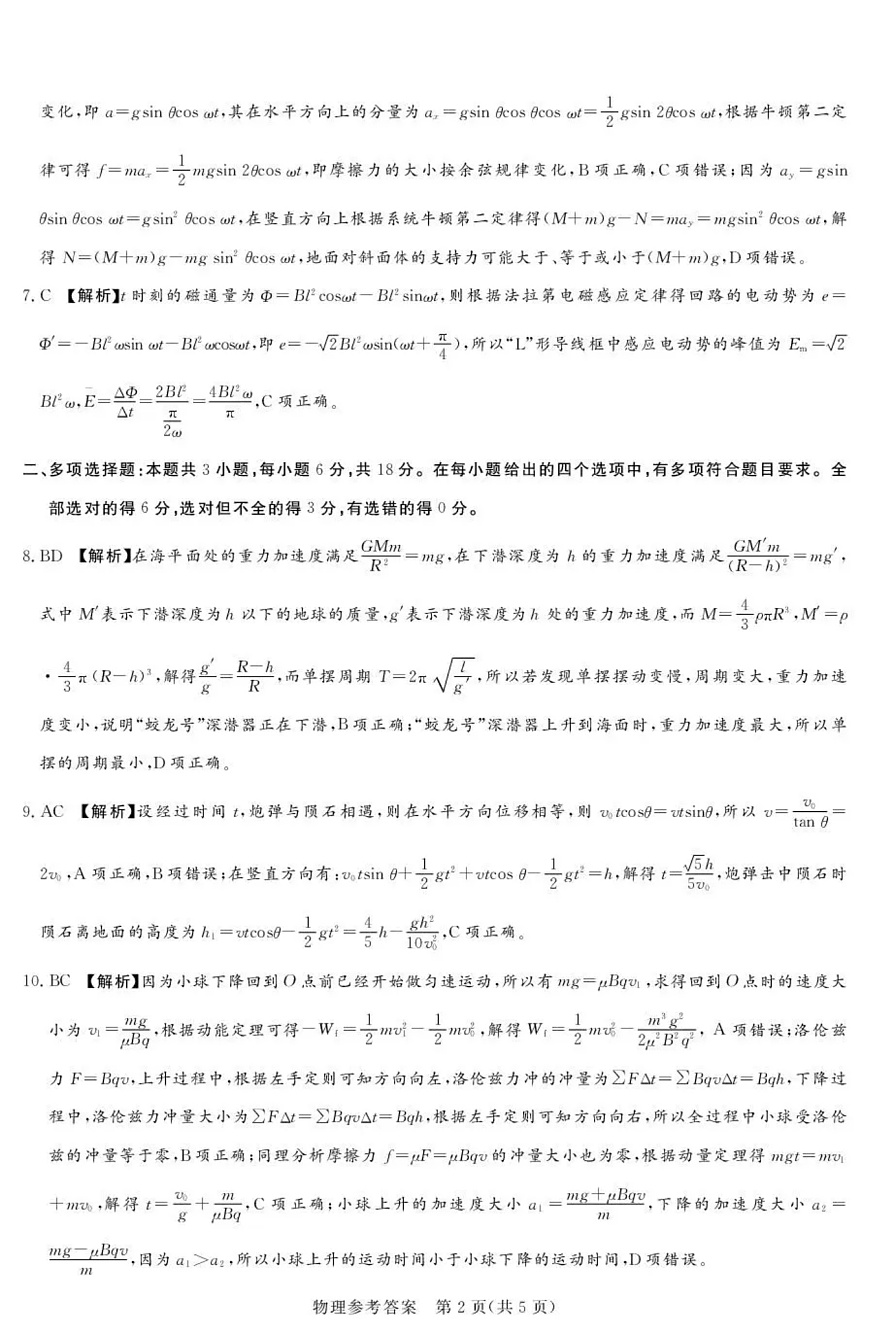 变化,即 a=gsin θcos ωt,其在水平方向上的分量为 aₓ=gsin θcos θcos ωt=1/2 gsin 2θcos ωt,根据牛顿第二定
律可得 f=maₓ=1/2 mgsin 2θcos ωt,即摩擦力的大小按余弦规律变化,B 项正确,C 项错误;因为 a_y=gsin
θsin θcos ωt=gsin² θcos ωt,在竖直方向上根据系统牛顿第二定律得(M+m)g-N=ma_y=mgsin² θcos ωt,解
得 N=(M+m)g-mg sin² θcos ωt,地面对斜面体的支持力可能大于、等于或小于(M+m)g,D 项错误。
7. C 【解析】t 时刻的磁通量为 Φ=Bl² cosωt-Bl² sinωt,则根据法拉第电磁感应定律得回路的电动势为 e=
Φ′=-Bl² ωsin ωt-Bl² ωcosωt,即 e=-√2Bl²ωsin(ωt+π/4),所以“L”形导线框中感应电动势的峰值为 Eₘ=√2
Bl² ω,E̅=ΔΦ/Δt=2Bl²/(π/2ω)=4Bl² ω/π,C 项正确。
二、多项选择题:本题共 3 小题,每小题 6 分,共 18 分。在每小题给出的四个选项中,有多项符合题目要求。全
部选对的得 6 分,选对但不全的得 3 分,有选错的得 0 分。
8. BD 【解析】在海平面处的重力加速度满足 GMm/R²=mg,在下潜深度为 h 的重力加速度满足 GM′m/(R-h)²=mg′,
式中 M′表示下潜深度为 h 以下的地球的质量,g′表示下潜深度为 h 处的重力加速度,而 M=4/3 ρπR³,M′=ρ
·4/3 π(R-h)³,解得 g′/g=(R-h)/R,而单摆周期 T=2π√(l/g′),所以若发现单摆摆动变慢,周期变大,重力加速
度变小,说明“蛟龙号”深潜器正在下潜,B 项正确;“蛟龙号”深潜器上升到海面时,重力加速度最大,所以单
摆的周期最小,D 项正确。
9. AC 【解析】设经过时间 t,炮弹与陨石相遇,则在水平方向位移相等,则 v₀tcosθ=vtsinθ,所以 v=v₀/tan θ=
2v₀,A 项正确,B 项错误;在竖直方向有:v₀tsin θ+1/2 gt²+vtcos θ-1/2 gt²=h,解得 t=√5h/5v₀,炮弹击中陨石时
陨石离地面的高度为 h₁=vtcosθ-1/2 gt²=4/5 h-gh²/10v₀²,C 项正确。
10. BC 【解析】因为小球下降回到 O 点前已经开始做匀速运动,所以有 mg=μBqv₁,求得回到 O 点时的速度大
小为 v₁=mg/μBq,根据动能定理可得-W_f=1/2 mv₁²-1/2 mv₀²,解得 W_f=1/2 mv₀²-m³g²/2μ²B²q²,A 项错误;洛伦兹
力 F=Bqv,上升过程中,根据左手定则可知方向向左,洛伦兹力冲的冲量为∑FΔt=∑BqvΔt=Bqh,下降过
程中,洛伦兹力冲量大小为∑FΔt=∑BqvΔt=Bqh,根据左手定则可知方向向右,所以全过程中小球受洛伦
兹的冲量等于零,B 项正确;同理分析摩擦力 f=μF=μBqv 的冲量大小也为零,根据动量定理得 mgt=mv₁
+mv₀,解得 t=v₀/g+m/μBq,C 项正确;小球上升的加速度大小 a₁=(mg+μBqv)/m,下降的加速度大小 a₂=
(mg-μBqv)/m,因为 a₁>a₂,所以小球上升的运动时间小于小球下降的运动时间,D 项错误。
物理参考答案 第 2 页(共 5 页)